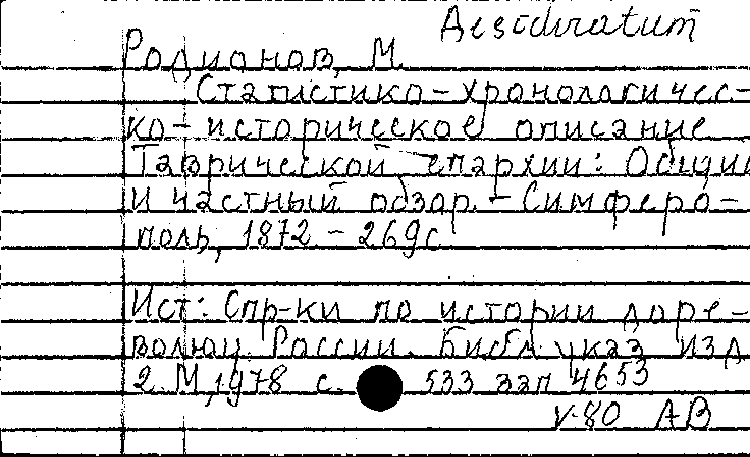 Desideratum
Родионов, М.
Статистико-хронологичес-
ко-историческое описание
Таврической епархии: Общий
и частный обзор. - Симферо-
поль, 1872 - 269с
Ист: Спр-ки по истории доре-
волюц. России. Библ. указ изд
2. М, 1978 с. 533 зап 4653
V-80 АВ